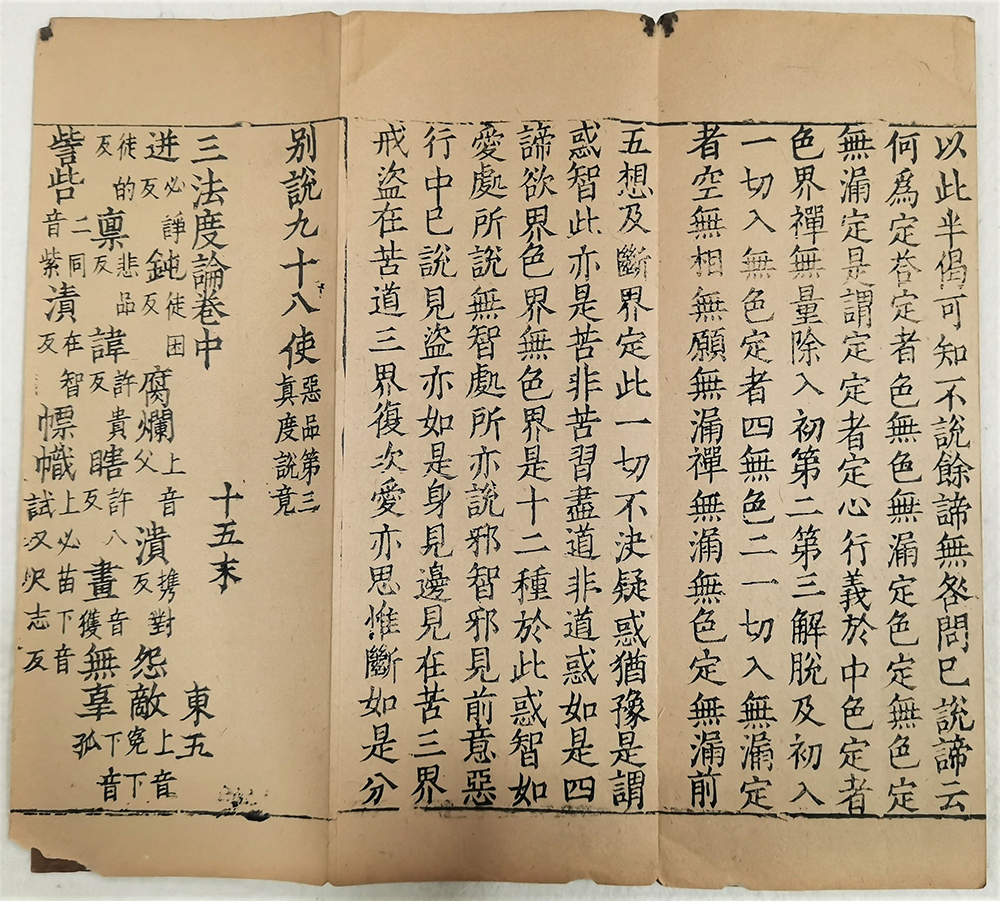 以此半偈可知不說餘諦無咎問巳說諦云
何爲定荅定者色無色無漏定色定無色定
無漏定是謂定定者定心行義於中色定者
色界禪無量除入初第二第三解脫及初入
一切入無色定者四無色二一切入無漏定
者空無相無願無漏禪無漏無色定無漏前
五想及斷界定此一切不決疑惑猶豫是謂
惑智此亦是苦非苦習盡道非道惑如是四
諦欲界色界無色界是十二種於此惑智如
愛處所說無智處所亦說邪智邪見前意惡
行中巳說見盜亦如是身見邊見在苦三界
戒盜在苦道三界復次愛亦思惟斷如是分
別說九十八使惡品第三真度說竟
三法度論卷中 十五末 東五
迸必諍反鈍徒困反腐爛上音父潰携對反怨敵上音寃下音
徒的反禀悲品反諱許貴反瞎許八反畫音獲無辜下音孤
訾呰二同音紫漬在智反幖幟上必苗下音試又尺志反